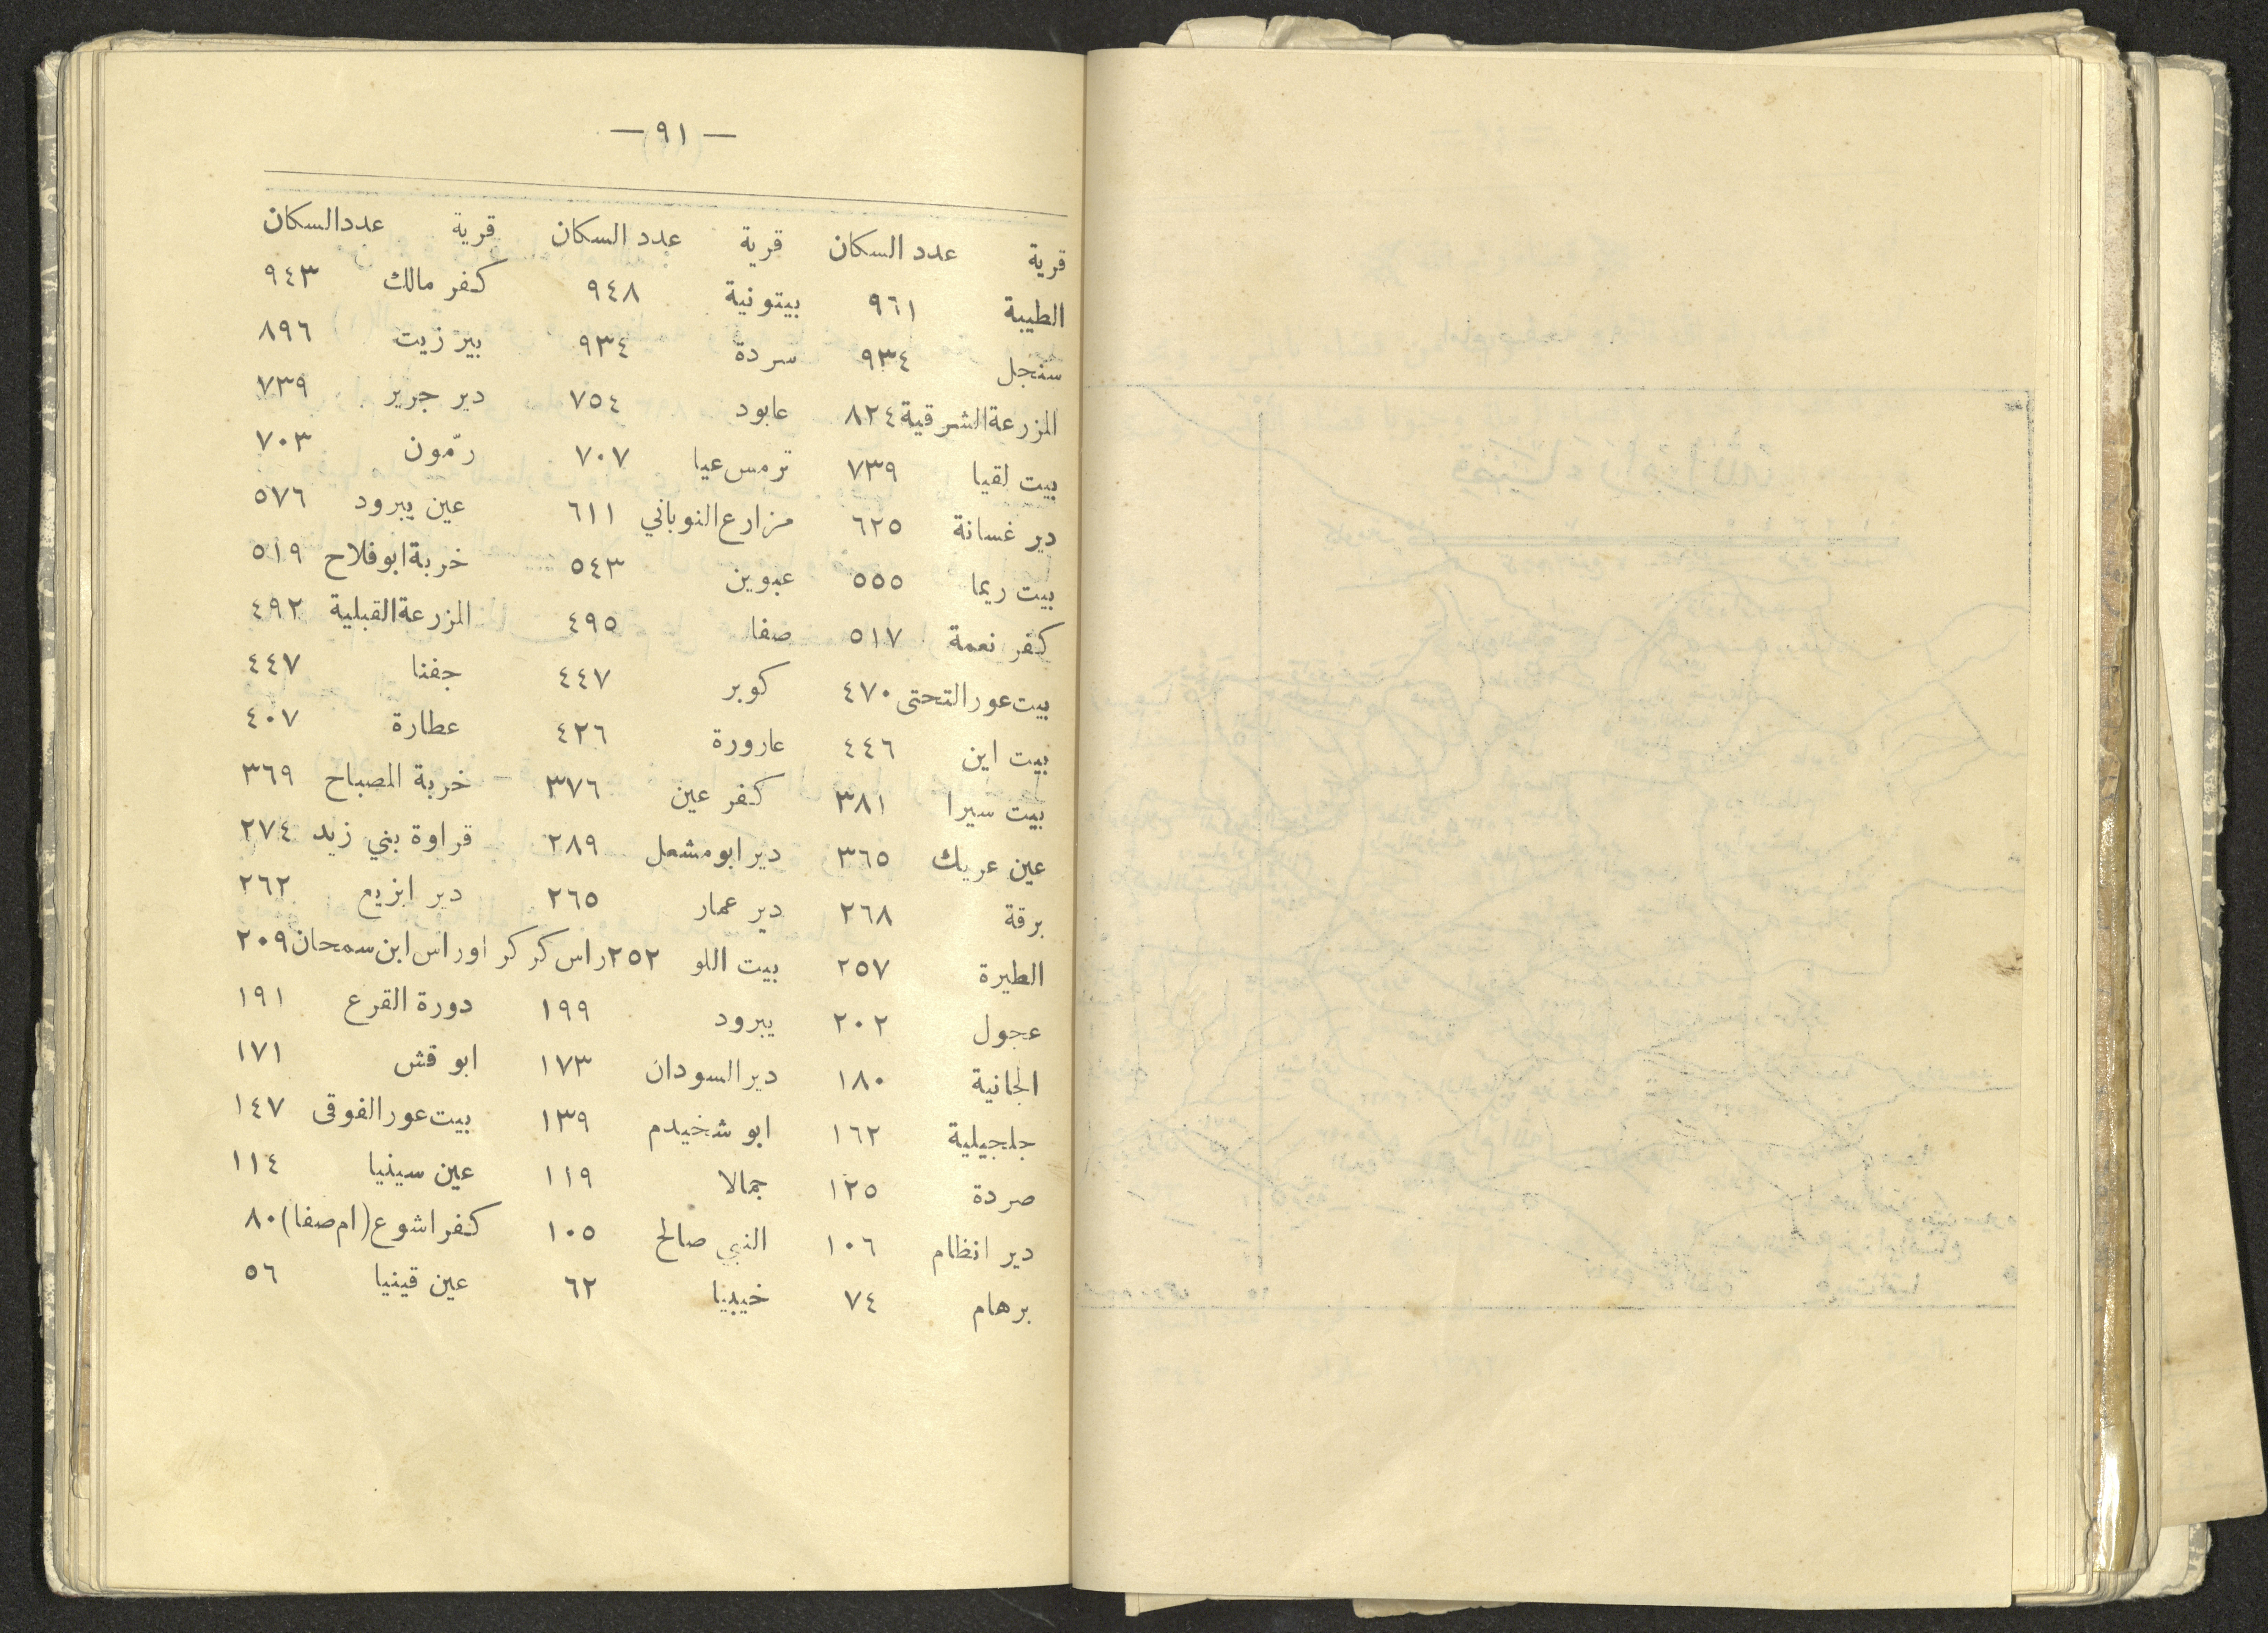 — ٩١ —
قرية عدد السكان قرية عدد السكان قرية عدد السكان
الطيبة ٩٦١ بيتونية ٩٤٨ كفر مالك ٩٤٣
سنجل ٩٣٤ سردة ٩٣٤ بير زيت ٨٩٦
المزرعة الشرقية ٨٢٤ عابود ٧٥٤ دير جرير ٧٣٩
بيت لقيا ٧٣٩ ترمس عيا ٧٠٧ رمّون ٧٠٣
دير غسانة ٦٢٥ مزارع النوباني ٦١١ عين يبرود ٥٧٦
بيت ريما ٥٥٥ عبوين ٥٤٣ خربة ابو فلاح ٥١٩
كفر نعمة ٥١٧ صفا ٤٩٥ المزرعة القبلية ٤٩٢
بيت عور التحتى ٤٧٠ كوبر ٤٤٧ جفنا ٤٤٧
بيت اين ٤٤٦ عارورة ٤٢٦ عطارة ٤٠٧
بيت سيرا ٣٨١ كفر عين ٣٧٦ خربة المصباح ٣٦٩
عين عريك ٣٦٥ دير ابو مشعل ٢٨٩ قراوة بني زيد ٢٧٤
برقة ٢٦٨ دير عمار ٢٦٥ دير ابزيع ٢٦٢
الطيرة ٢٥٧ بيت اللو ٢٥٢ راس كركر او راس ابن سمحان ٢٠٩
عجول ٢٠٢ يبرود ١٩٩ دورة القرع ١٩١
الجانية ١٨٠ دير السودان ١٧٣ ابو قش ١٧١
جلجيلية ١٦٢ ابو شخيدم ١٣٩ بيت عور الفوقى ١٤٧
صردة ١٢٥ جمالا ١١٩ عين سينيا ١١٤
دير انظام ١٠٦ النبي صالح ١٠٥ كفر اشوع (ام صفا) ٨٠
برهام ٧٤ خيبيا ٦٢ عين قينيا ٥٦